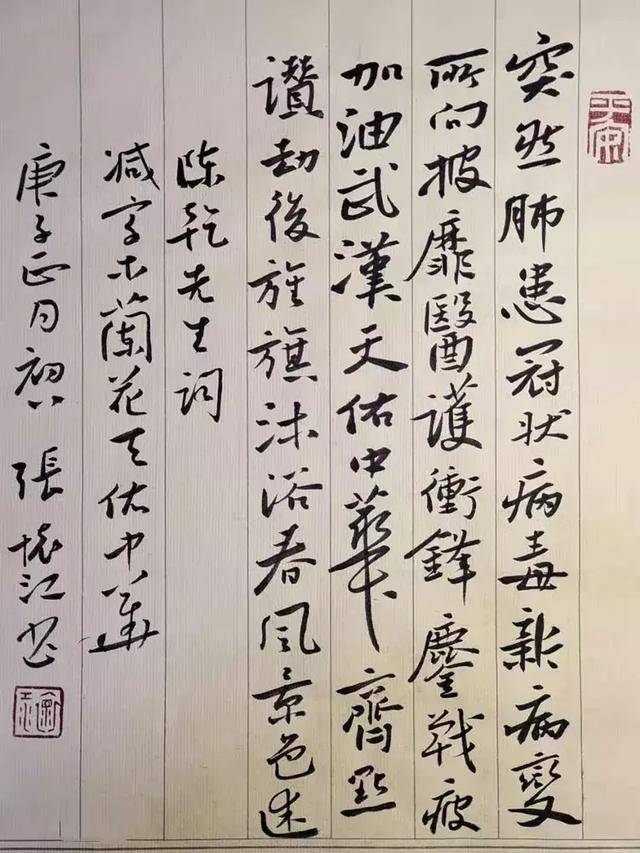 突然肺患冠状病毒新病變
所向披靡醫護衝鋒鏖戰疲
加油武漢天佑中華齊點
讚劫後旌旗沐浴春風景色迷
陈乾先生詞
减字木蘭花天佑中華
庚子正月初八 張懷江书